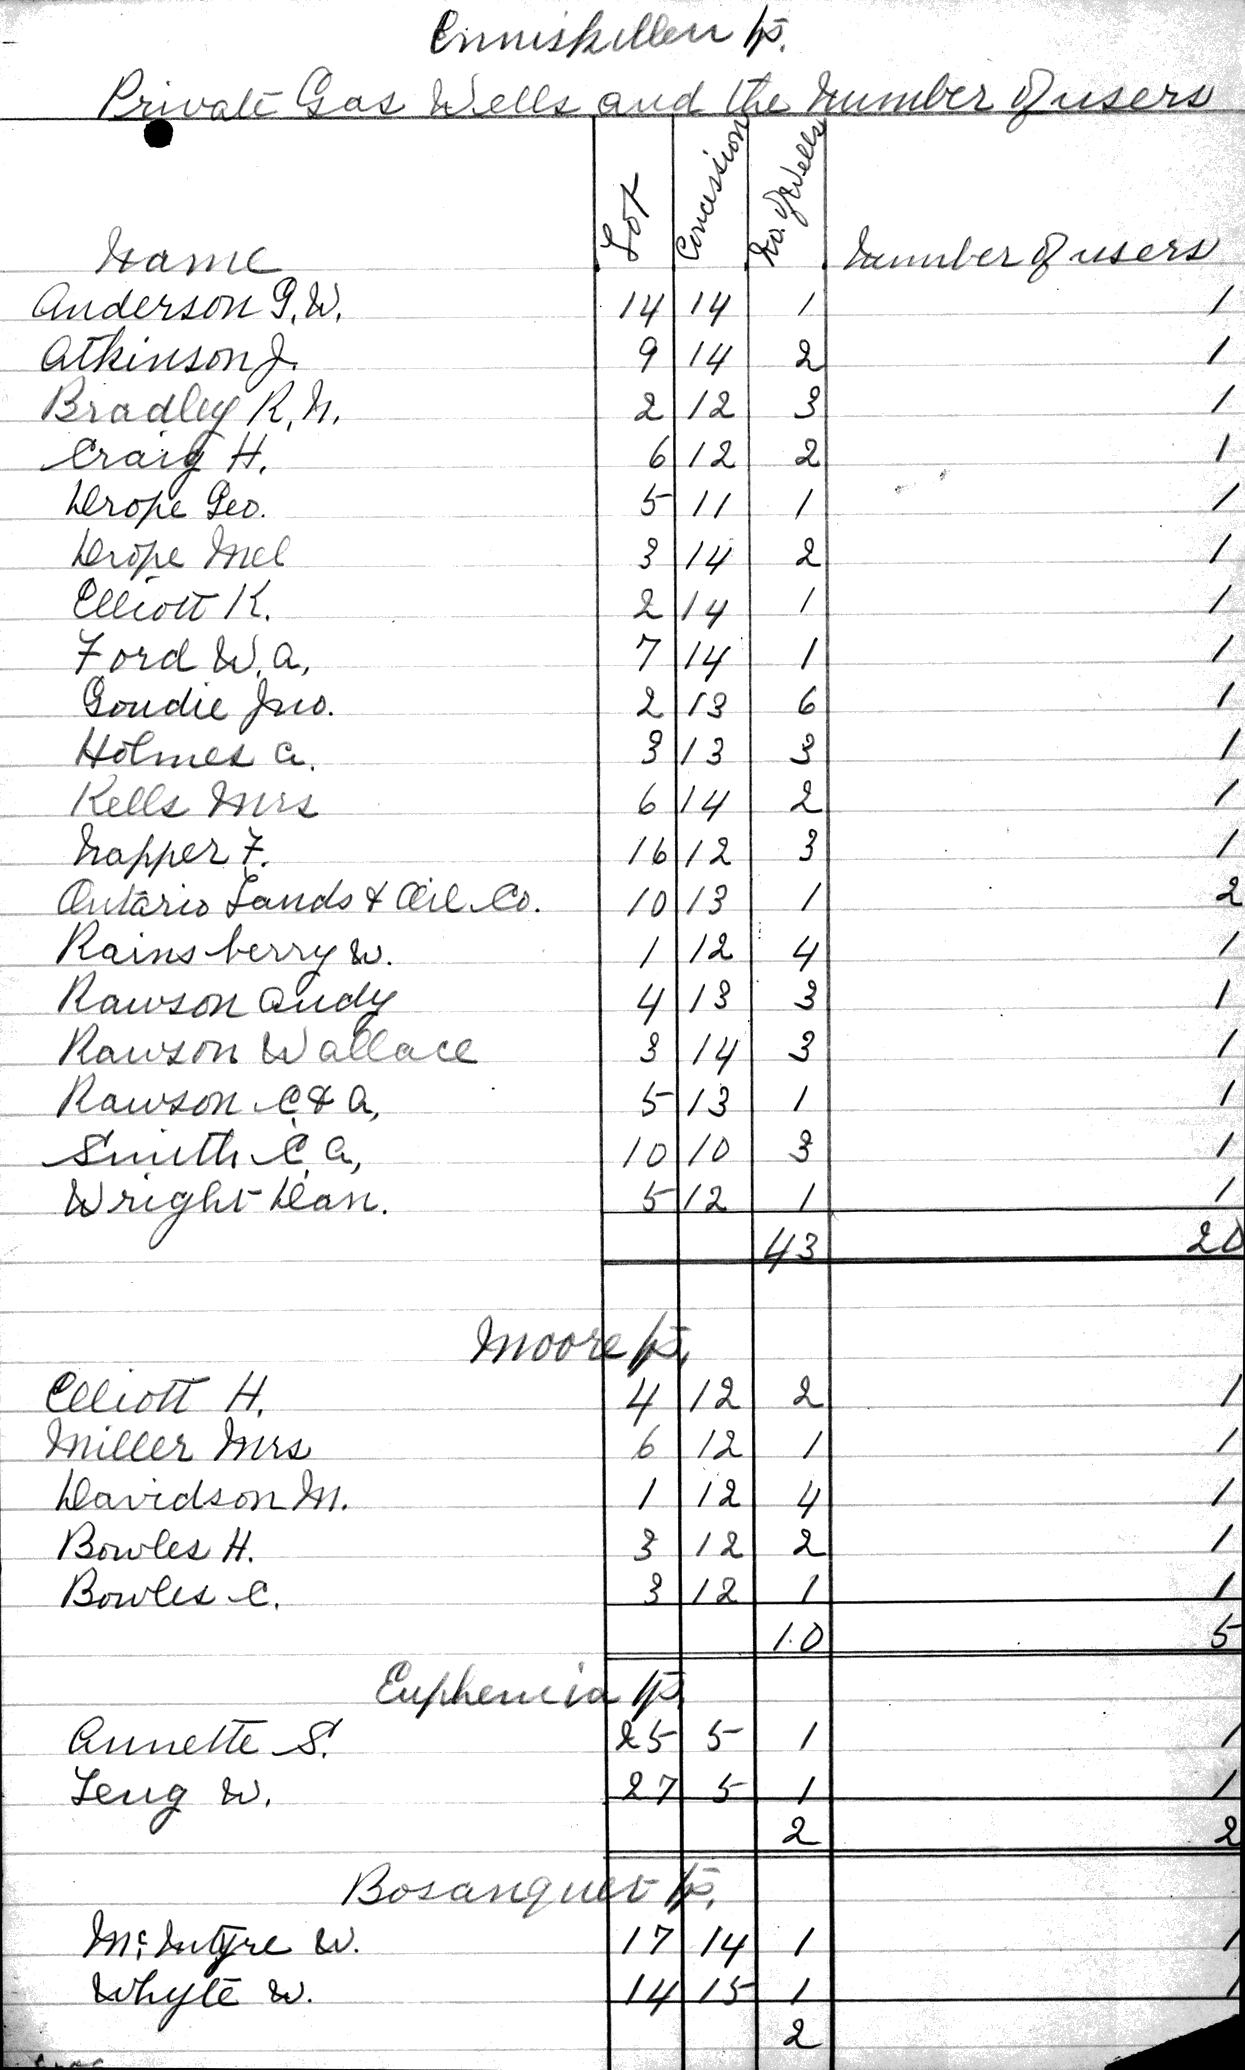 Enniskillen tp.
Private Gas Wells and the Number of users
Name Lot Concession No. of Wells Number of users
Anderson G.W. 14 14 1 1
Atkinson J. 9 14 2 1
Bradley R.N. 2 12 3 1
Craig H. 6 12 2 1
Drope Geo. 5 11 1 1
Drope Mel 3 14 2 1
Elliott K. 2 14 1 1
Ford W.A. 7 14 1 1
Goudie Jno. 2 13 6 1
Holmes A. 3 13 3 1
Kells Mrs 6 14 2 1
Napper F. 16 12 3 1
Ontario Lands & Oil Co. 10 13 1 2
Rainsberry W. 1 12 4 1
Rawson Andy 4 13 3 1
Rawson Wallace 3 14 3 1
Rawson C & A, 5 13 1 1
Smith C.A, 10 10 3 1
Wright Dan. 5 12 1 1
43 20
Moore tp.
Elliott H. 4 12 2 1
Miller Mrs 6 12 1 1
Davidson M. 1 12 4 1
Bowles H. 3 12 2 1
Bowles C. 3 12 1 1
10 5
Euphemia tp
Annette S. 25 5 1 1
Leng W. 27 5 1 1
2 2
Bosanquet tp.
McIntyre W. 17 14 1 1
Whyte W. 14 15 1 1
2